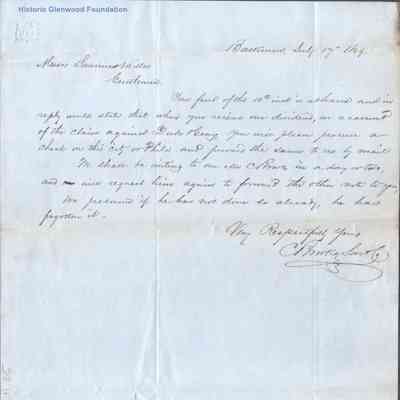 Historic Glenwood Foundation
Baltimore, July 17th 1849.
Messrs
Gentlemen
Your favor of the 10th inst is at hand and in
reply would state that when you receive our dividend, on account
of the claim against you will please procure a
check on this City or Phila and forward the same to us by mail
We shall be writing to our in a day or two,
and will request him again to forward the other note to you,
we presume if he has not done so already, he has
forgotten it.
Very Respectfully Yours
C Brooks Son & Co